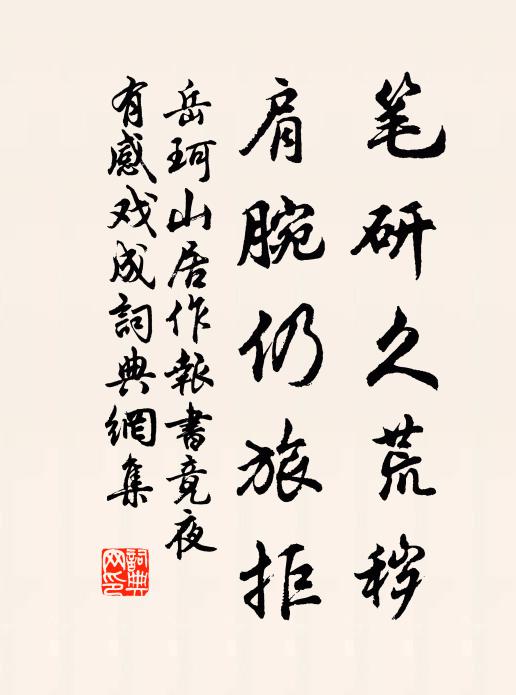 笔研久荒秽
肩腕仍旅拒
岳珂山居作報書竟夜
有感戏成詞典網集
詞典网印